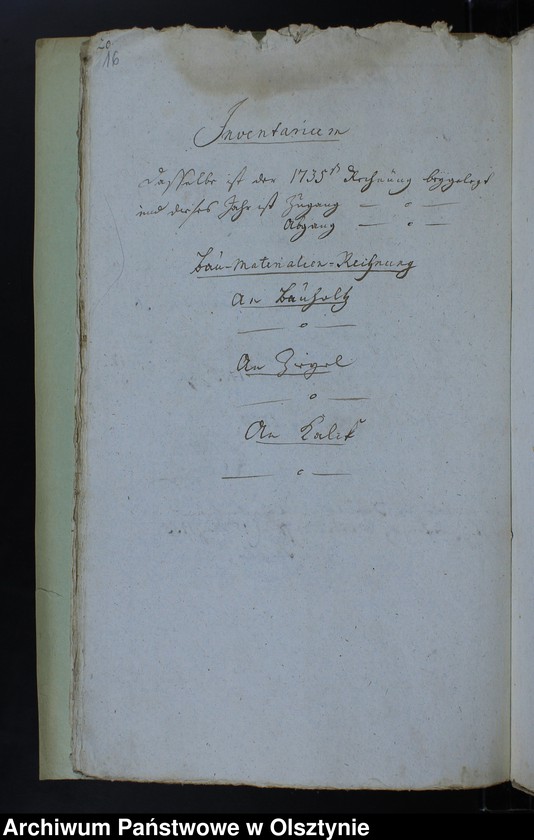 20
16
Inventarium
Dasselbe ist der 1735t Rechnung beygelegt
und dieses Jahr ist Zugang — o —
Abgang — o —
Bau-Materialien-Rechnung
An Bauholtz
— o —
An Ziegel
— o —
An Kalck
— o —
Archiwum Państwowe w Olsztynie